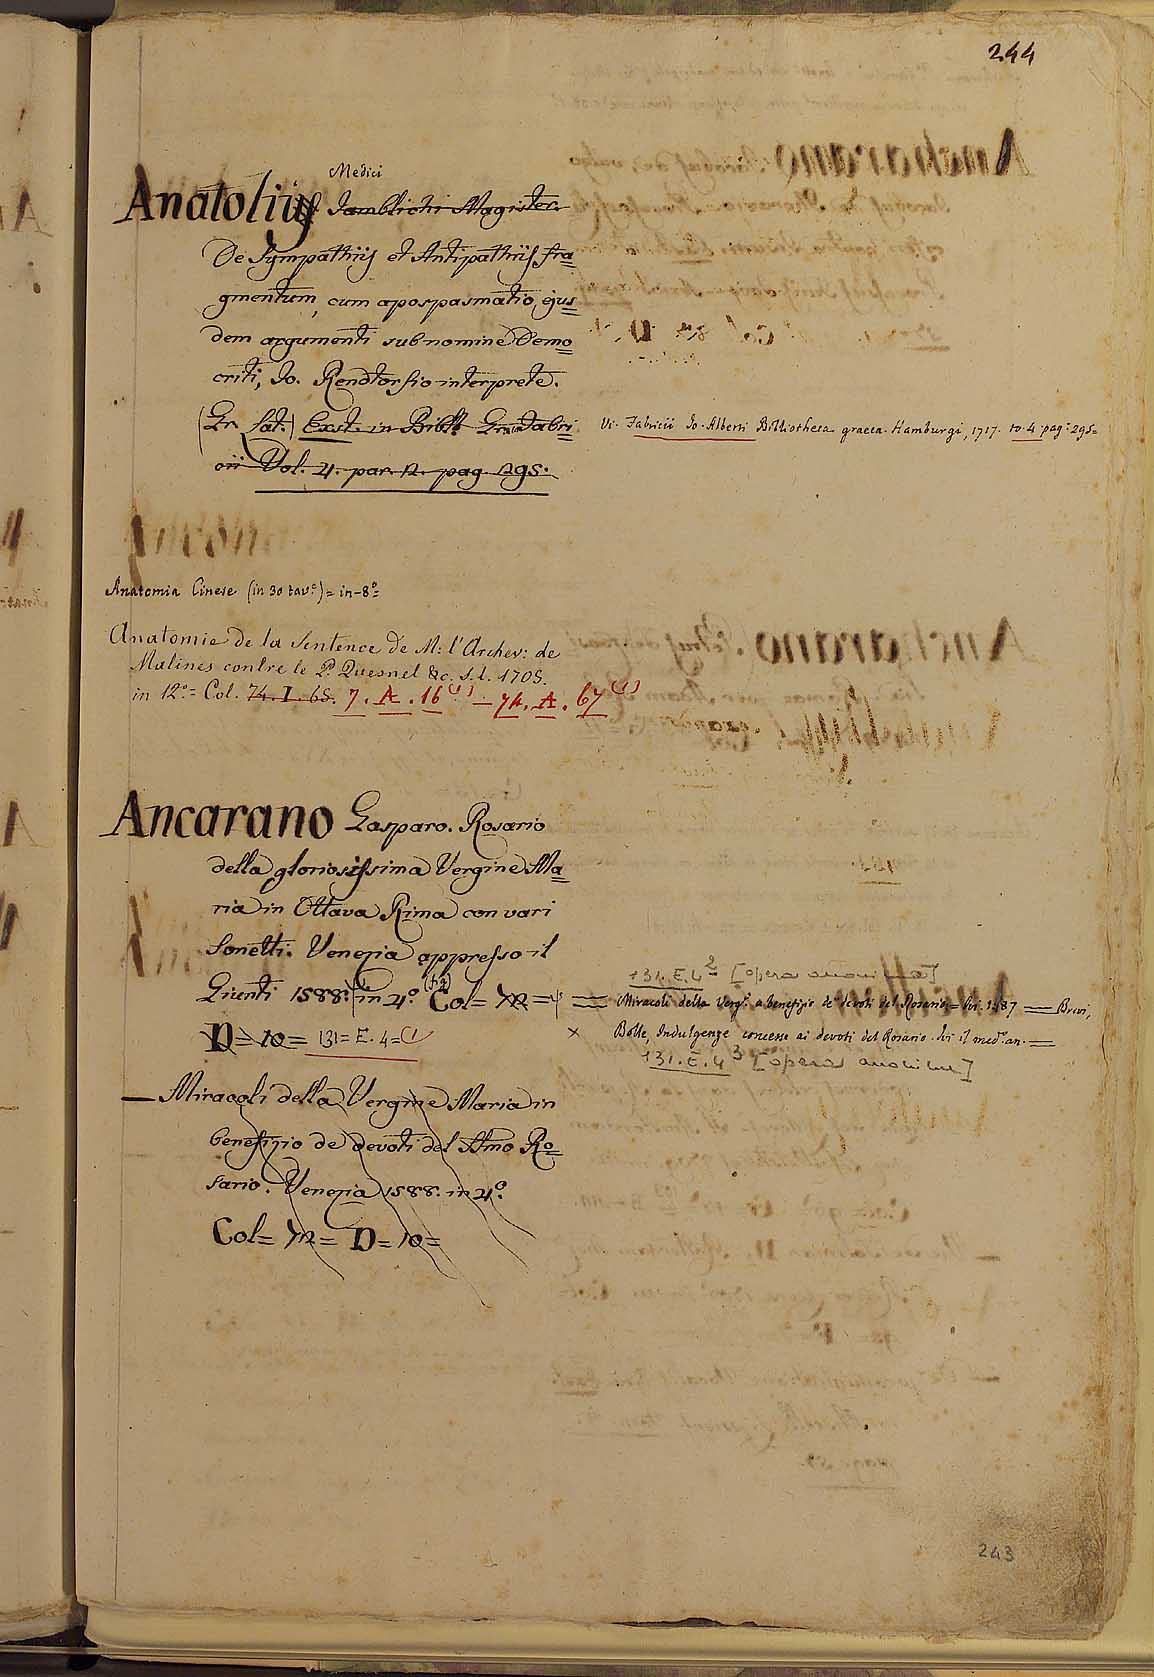 244
Medici
Anatolius Iamblichi Magister.
De Sympathiis et Antipathiis fra=
gmentum, cum apospasmatio ejus=
dem argumenti sub nomine Demo=
criti, Io. Rendtorfio interprete.
(Gr. Lat.) Exst. in Bibl. Gr. Fabri=
cii Vol. 4. par. 2. pag. 295.
Vi. Fabricii Io. Alberti Bibliotheca graeca. Hamburgi, 1717. to. 4 pag. 295=
Anatomia Cinese (in 30 tav.e) = in-8°=
Anatomie de la Sentence de M: l'Archev: de
Malines contre le P. Quesnel &c. s.l. 1705.
in 12°= Col. 74. I. 65. 7. A. 16(1) — 74. A. 67(1)
Ancarano Gasparo. Rosario
della gloriosissima Vergine Ma=
ria in Ottava Rima con vari
Sonetti. Venezia appresso il
Giunti 1588. in 4°. Col= 72 =
D= 10= 131= E. 4=(1
131.E.4 2 [opera anonima]
Miracoli della Verg.e a benefizio de' devoti del Rosario= Ivi. 1587 — Brevi,
× Bolle, Indulgenze concesse ai devoti del Rosario. Ivi il med.° an. =
131.E.4 3 [opera anonima]
— Miracoli della Vergine Maria in
benefizio de devoti del SSmo Ro=
sario. Venezia 1588. in 4°.
Col= 72= D= 10=
243